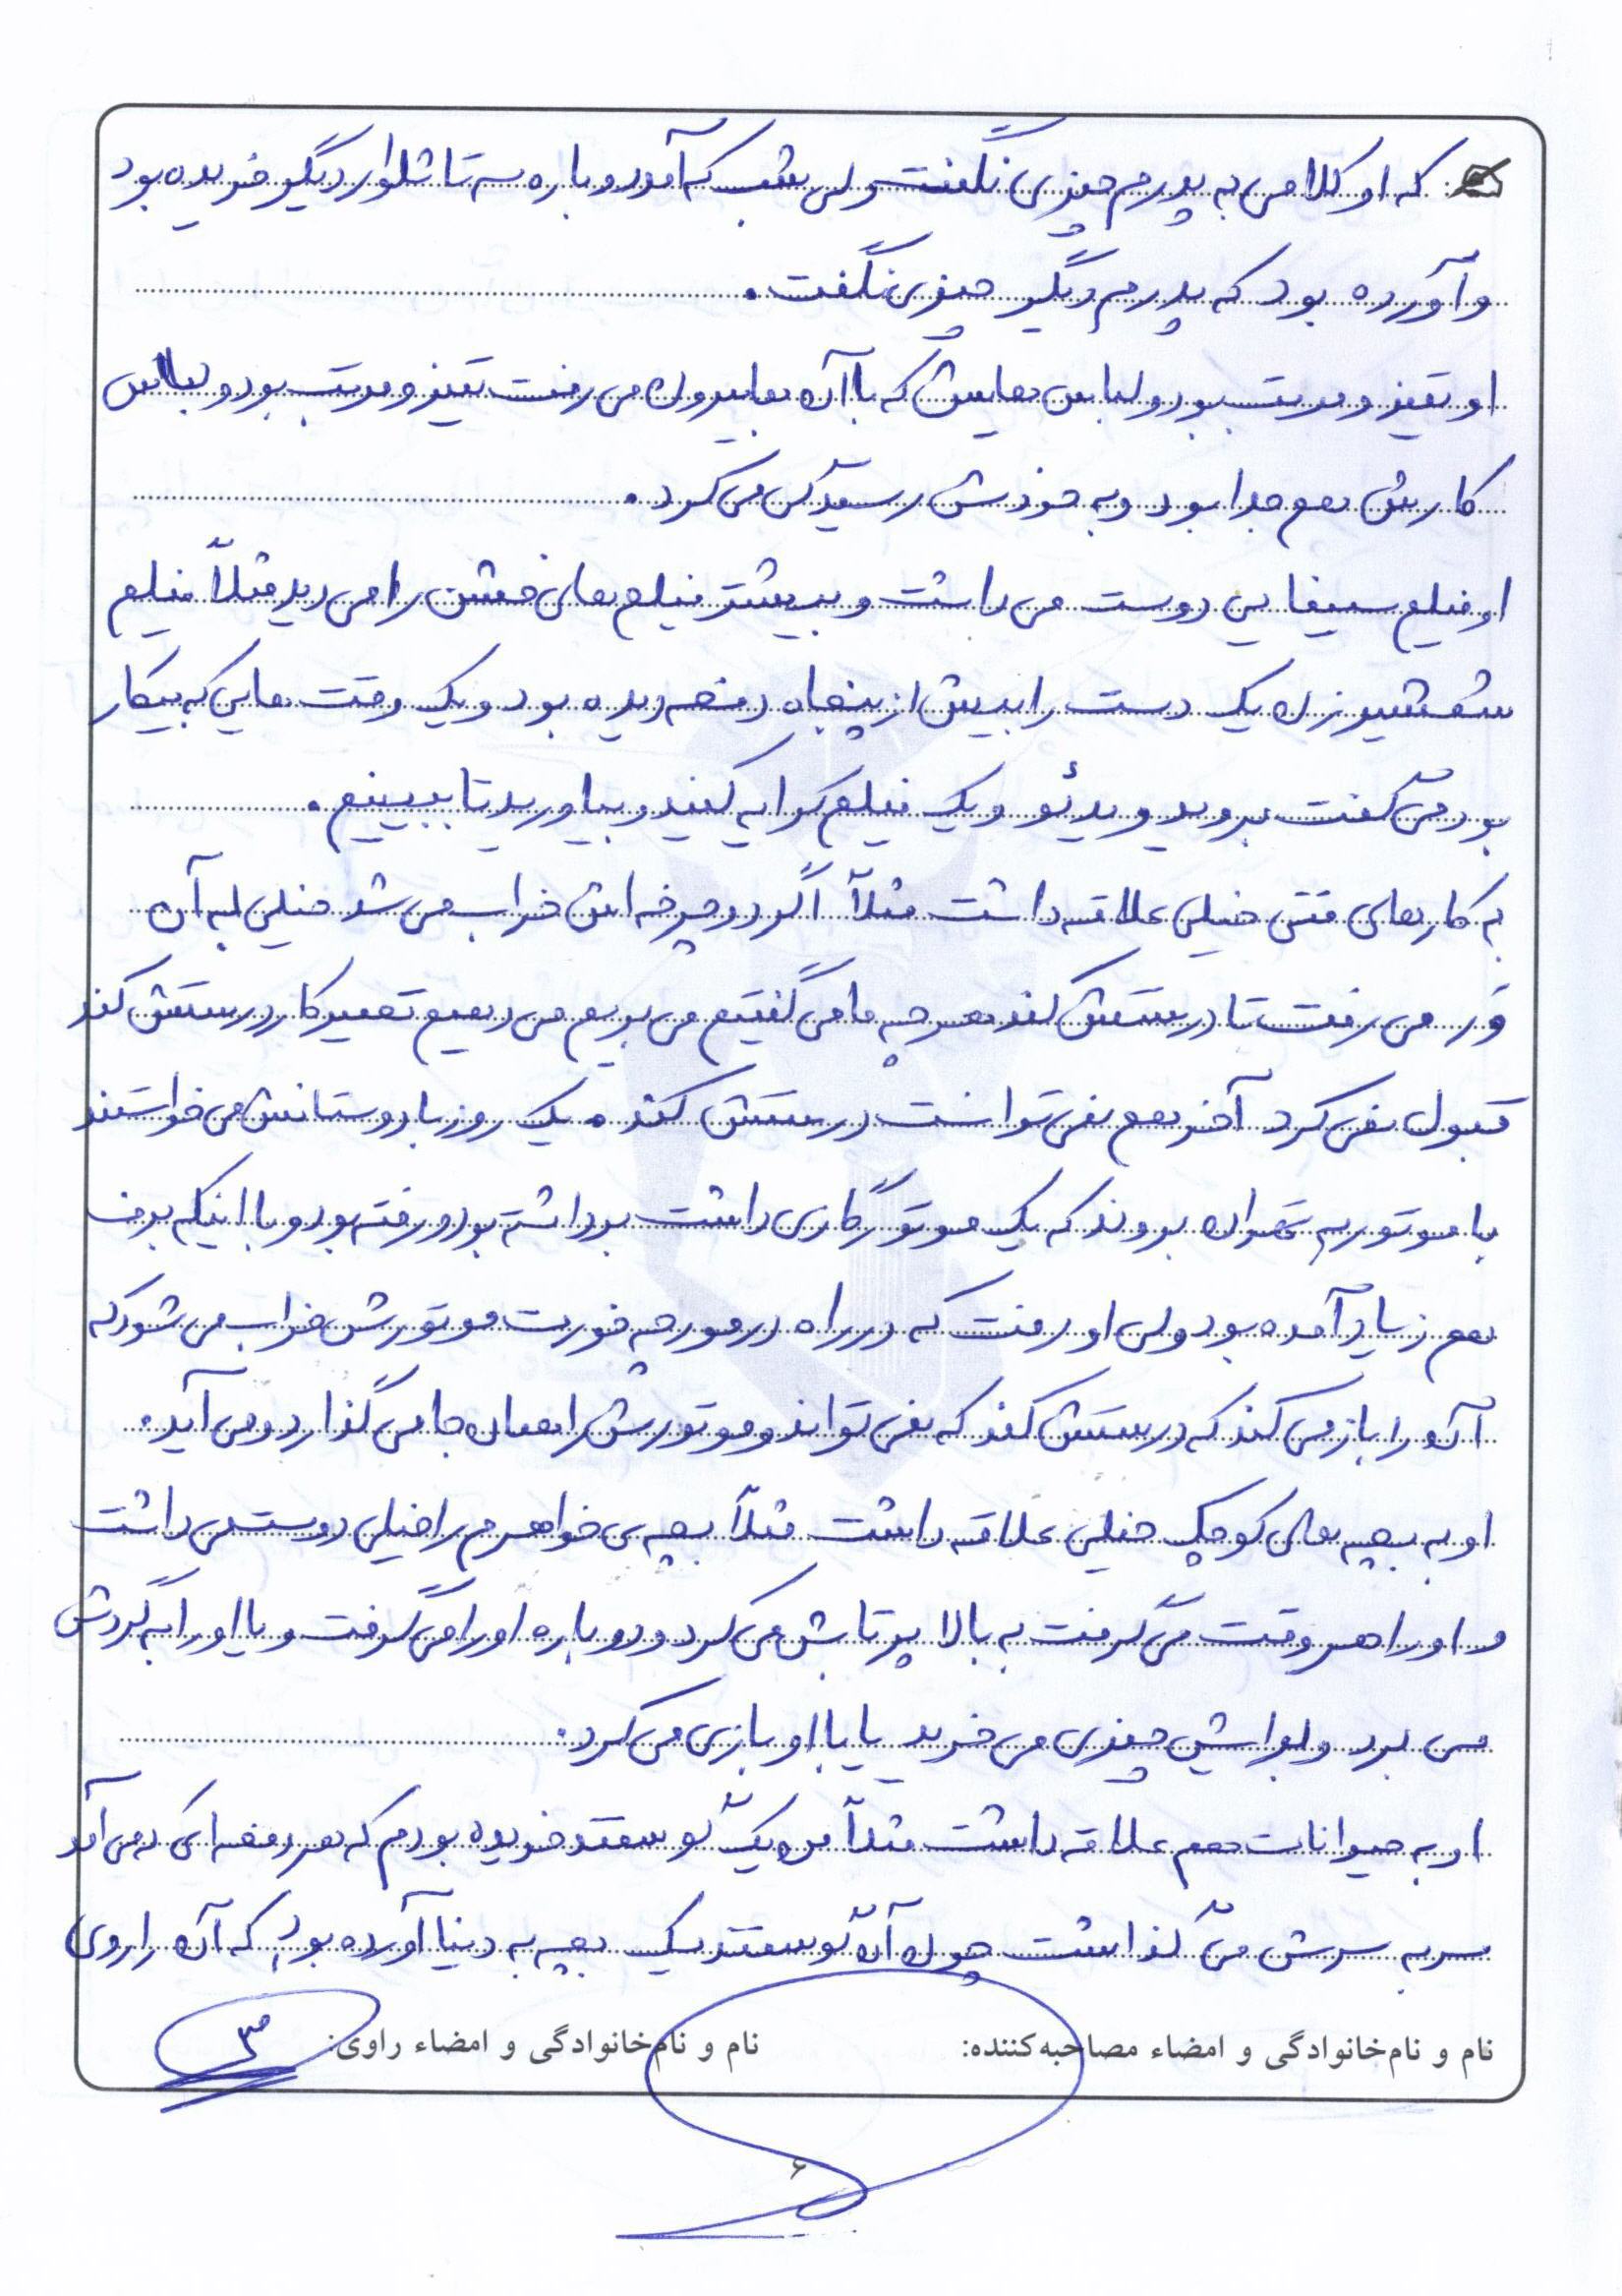 که او کلامی به پدرم چیزی نگفت ولی شب که آمد دوباره سه تا شلوار دیگر خریده بود
و آورده بود که پدرم دیگر چیزی نگفت.
او تمیز و مرتب بود و لباس هایش که با آن بیرون می رفت تمیز و مرتب بود و لباس
کارش هم جدا بود و به خودش رسیدگی می کرد.
او فیلم سینمایی دوست می داشت و بیشتر فیلم های خشن را می دید مثلاً فیلم
شمشیرزن یک دست را بیش از پنجاه دفعه دیده بود و یک وقت هایی که بیکار
بود می گفت بروید ویدئو و یک فیلم کرایه کنید و بیاورید تا ببینیم.
به کارهای فنی خیلی علاقه داشت مثلاً اگر دوچرخه اش خراب می شد خیلی به آن
ور می رفت تا درستش کند هر چه ما می گفتیم می بریم می دهیم تعمیرکار درستش کند
قبول نمی کرد آخر هم نمی توانست درستش کند. یک روز با دوستانش می خواستند
با موتور به تهران بروند که یک موتور گازی داشت برداشته بود و رفته بود و با اینکه برف
هم زیاد آمده بود ولی او رفت که در راه در مورچه خورت موتورش خراب می شود که
آن را باز می کند که درستش کند که نمی تواند و موتورش را همان جا می گذارد و می آید.
او به بچه های کوچک خیلی علاقه داشت مثلاً بچه ی خواهرم را خیلی دوست می داشت
و او را هر وقت می گرفت به بالا پرتابش می کرد و دوباره او را می گرفت و یا او را به گردش
می برد و برایش چیزی می خرید یا با او بازی می کرد.
او به حیوانات هم علاقه داشت مثلاً من یک گوسفند خریده بودم که هر دفعه ای که می آمد
سر به سرش می گذاشت چون آن گوسفند یک بچه به دنیا آورده بود که آن را روی
نام و نام‌خانوادگی و امضاء مصاحبه‌کننده: نام و نام‌خانوادگی و امضاء راوی:
۳
۶